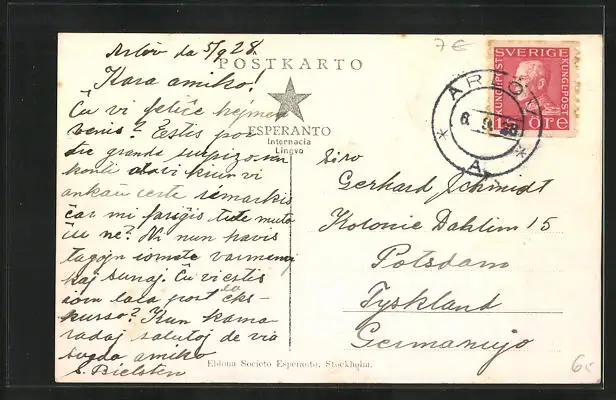 Arlöv da 5/9 28.
POSTKARTO
Kara amiko!
Ĉu vi feliĉe hejmen
venis? Estis por
tre granda surpizo
ESPERANTO
Internacia
Lingvo
vi kiun vi
ankaŭ certe rimarkis
ĉar mi fariĝis tute muta
ĉu ne? Ni nun havis
tagojn iomete varmenaj
kaj sunaj. Ĉu vi estis
tom laca post la eks-
kurso? Kun kama
radaj salutoj de via
sveda amiko
S. Bielsten
7€
SVERIGE
KUNGL POST
KUNGL POST
15 ÖRE
ARLÖV
6. 9. 28
A
Siro
Gerhard Schmidt
Kolonie Dahlim 15
Potsdam
Tyskland
Germanujo
Eldona Societo Esperanto, Stockholm.